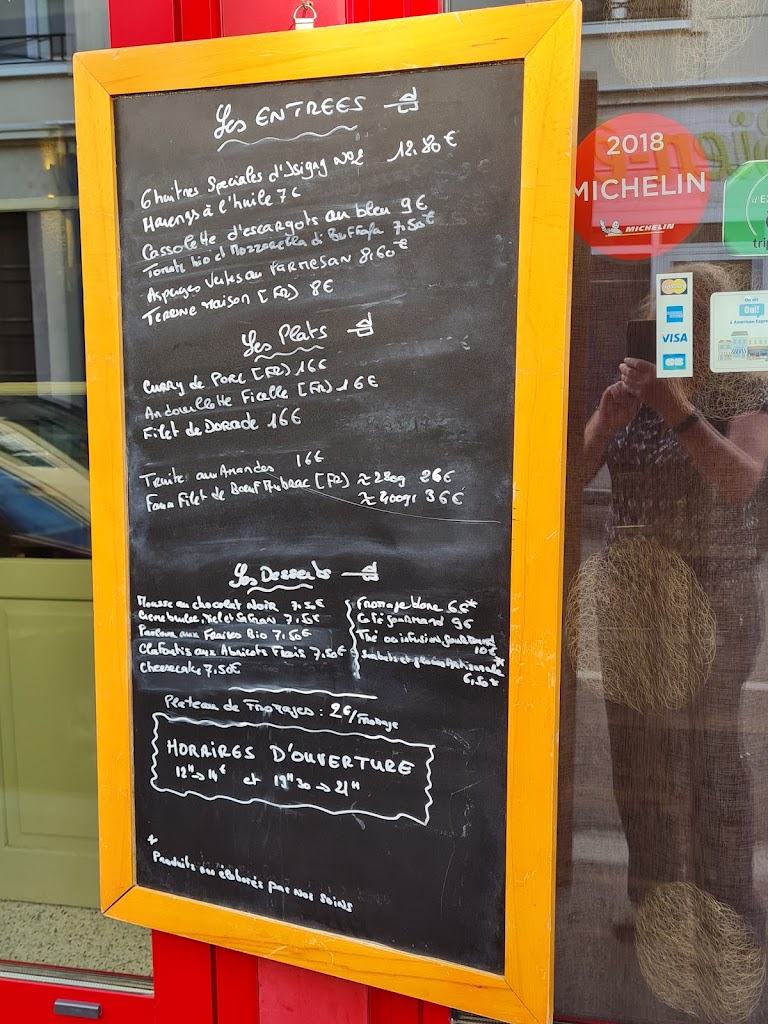 Les ENTREES
6 huitres Speciales d'Isigny N°2 12,80€
Harengs à l'huile 7€
Cassolette d'escargots au bleu 9€
Tomate bio et Mozzarella di Buffala 7,50€
Asperges Vertes au PARMESAN 8,60€
TERRINE Maison [FR] 8€
Les Plats
Curry de Porc [FR] 16€
Andouillette Ficelle [FR] 16€
Filet de DORADE 16€
Truite aux Amandes 16€
Faux Filet de Boeuf Aubrac [FR] ≈ 280g 26€
≈ 400gr 36€
Les Desserts
Mousse au chocolat NOIR 7,50€
Creme brulee, Miel et Safran 7,50€
Pavlova aux Fraises Bio 7,50€
Clafoutis aux Abricots Frais 7,50€
Cheesecake 7,50€
Fromage blanc 6€*
Café gourmand 9€
Thé ou infusion gourmand
10€
Sorbets et glaces Artisanales*
6,50€
Plateau de Fromages : 2€/fromage
HORAIRES D'OUVERTURE
12H → 14H et 19H30 → 21H
*
Produits élaborés par nos soins
2018
MICHELIN
MICHELIN
VISA
CB
Oui!